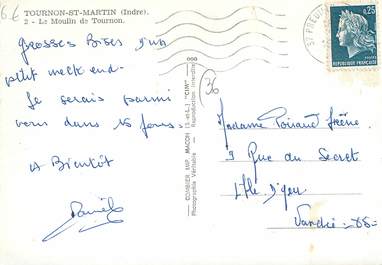 6€
TOURNON-ST-MARTIN (Indre).
2 - Le Moulin de Tournon.
Grosses Bises d'un
petit week end.
Je serais parmi
vous dans 15 jours.
A Bientôt
Daniel
36
COMBIER IMP. MACON (S.-et-L.) "CIM"
Photographie Véritable - Reproduction interdite
0,25
REPUBLIQUE FRANÇAISE
Madame
9 Rue du Secret
L'Ile d'Yeu
Vendée - 85 -